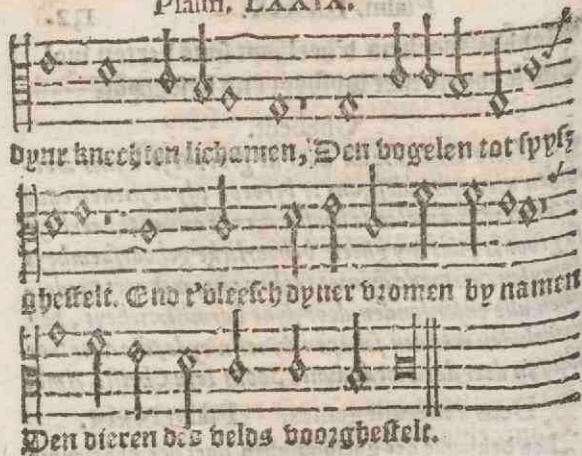 Psalm. LXXIX.
dyner knechten lichamen, Den vogelen tot spysz
ghestelt. End t'vleesch dyner vromen by namen
Den dieren des velds voorghestelt.